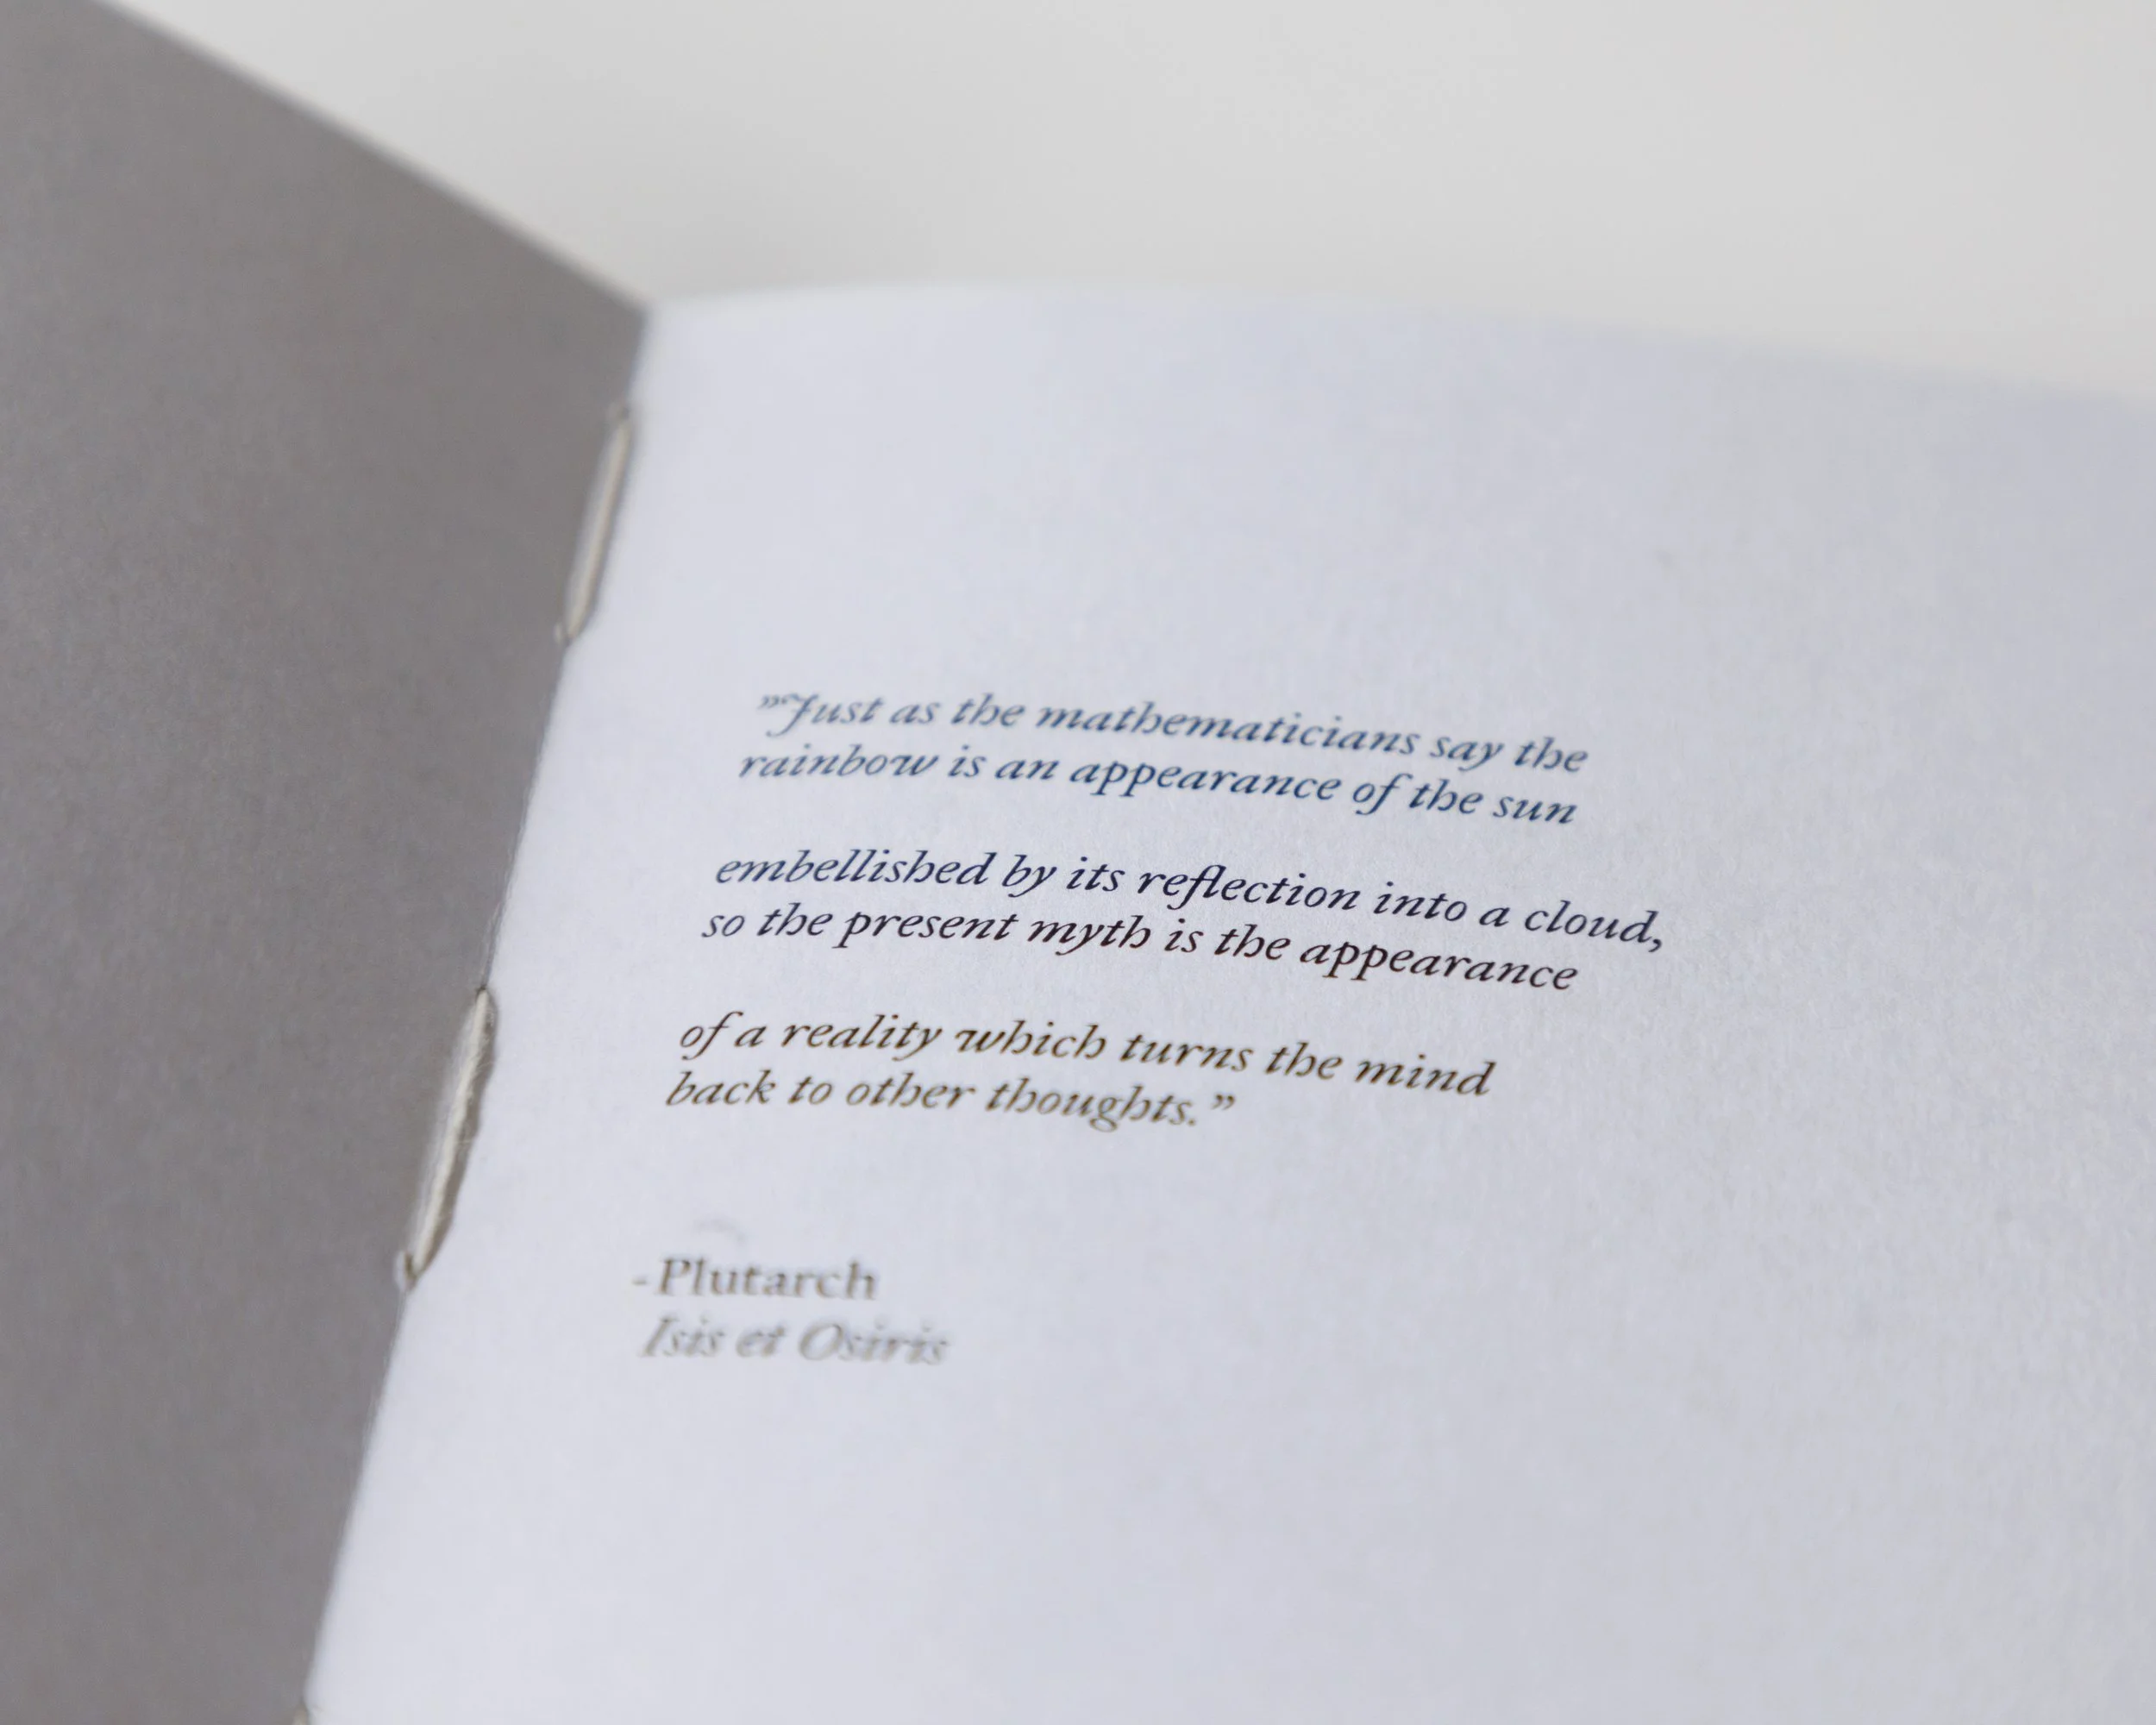 ”“Just as the mathematicians say the
rainbow is an appearance of the sun
embellished by its reflection into a cloud,
so the present myth is the appearance
of a reality which turns the mind
back to other thoughts.”
- Plutarch
Isis et Osiris